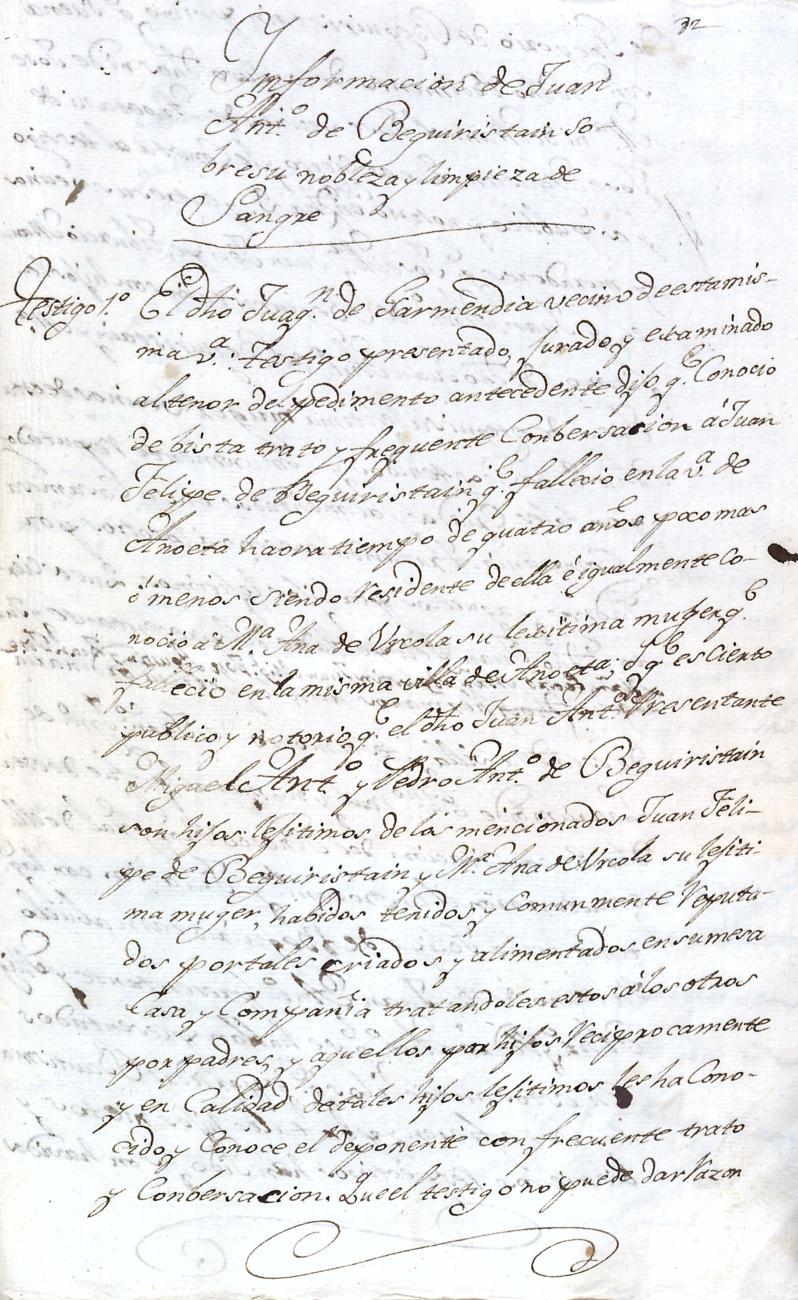 32
Informacion de Juan
Antº de Beguiristain so-
bre su nobleza y limpieza de
Sangre
Testigo 1º El dho Juaqn de Garmendia vecino de esta mis-
ma va. Testigo presentado, jurado, y examinado
al tenor del pedimento antecedente dijo qe Conocio
de bista trato y frequente Conbersacion á Juan
Felipe de Beguiristain qe fallecio en la va de
Anoeta haora tiempo de quatro años poco mas
ó menos siendo residente de ella é igualmente Co-
nocio á Ma Ana de Urcola su lexitima mujer qe
fallecio en la misma villa de Anoeta; qe es Cierto
publico y notorio qe el dho Juan Antº Presentante
Miguel Antº y Pedro Antº de Beguiristain
son hijos lejitimos de los mencionados Juan Feli-
pe de Beguiristain y Ma Ana de Urcola su lejiti-
ma muger, habidos tenidos y Comunmente reputa-
dos por tales criados y alimentados en su mesa
Casa y Compañia tratandoles estos á los otros
por padres, y aquellos por hijos reciprocamente
y en Calidad de tales hijos lejitimos les ha Cono-
cido y Conoce el deponente con frecuente trato
y Conbersacion. Que el testigo no puede dar razon